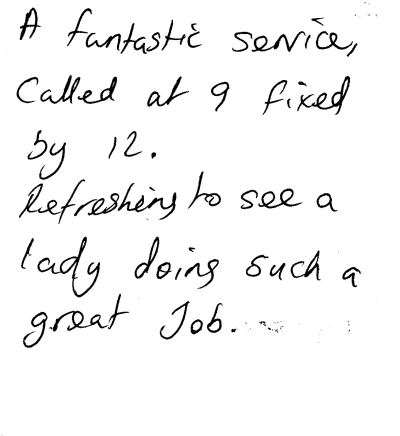 A fantastic service,
Called at 9 fixed
by 12.
Refreshing to see a
lady doing such a
great Job.